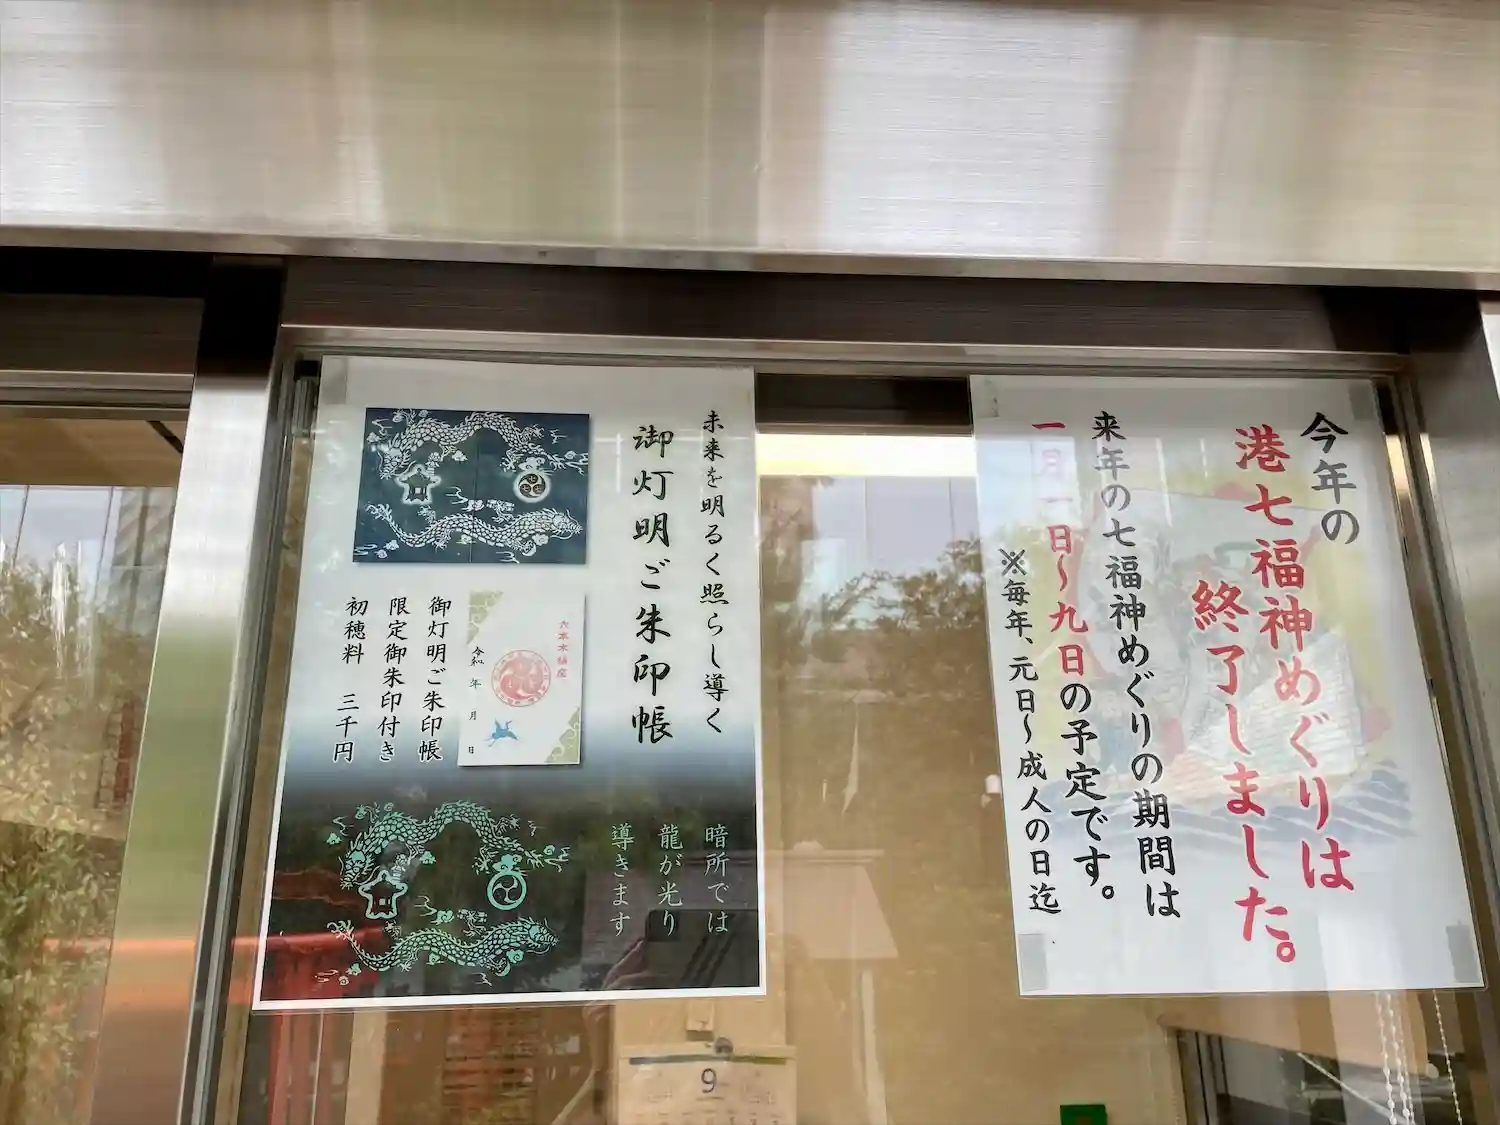 未来を明るく照らし導く
御灯明ご朱印帳
六本木天祖
令和 年 月 日
御灯明ご朱印帳
限定御朱印付き
初穂料 三千円
暗所では
龍が光り
導きます
今年の
港七福神めぐりは
終了しました。
来年の七福神めぐりの期間は
一月一日〜九日の予定です。
※毎年、元日〜成人の日迄
9